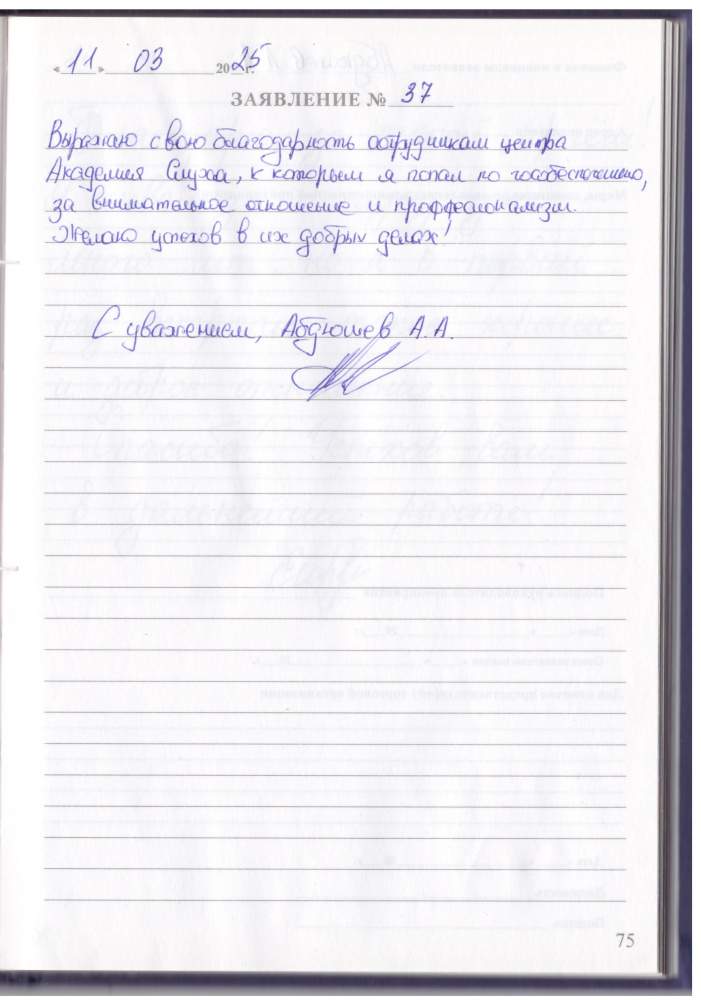 «11» 03 2025 г.
ЗАЯВЛЕНИЕ № 37
Выражаю свою благодарность сотрудникам центра
Академия Слуха, к которым я попал по гособеспечению,
за внимательное отношение и проффесионализм.
Желаю успехов в их добрых делах!
С уважением, Абдюшев А.А.
75